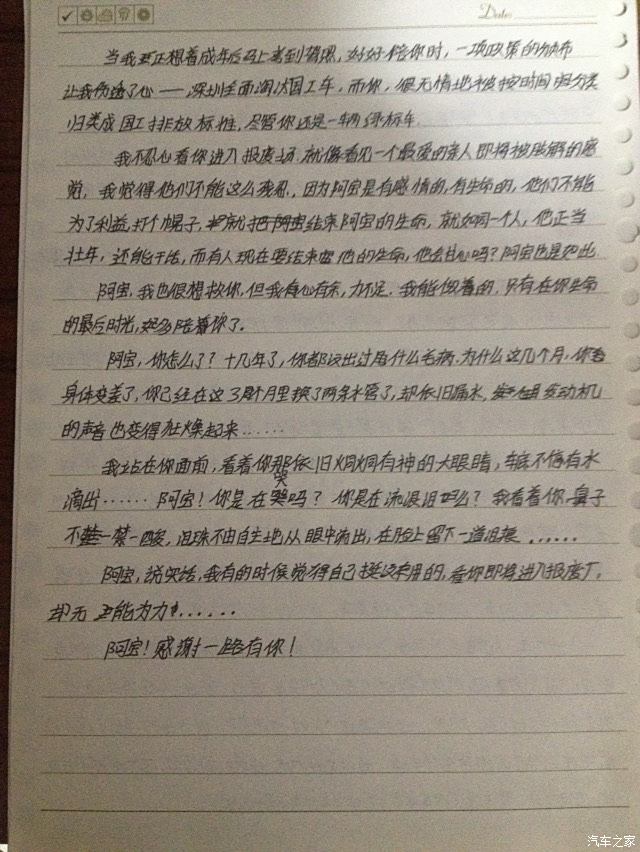 Date
当我正想着成年后马上考到驾照，好好陪你时，一项政策的颁布
让我伤透了心——深圳全面淘汰国I车，而你，很无情地被按时间段分类
归类成国I排放标准，尽管你还是一辆绿标车.
我不忍心看你进入报废场，就像看见一个最爱的亲人即将被肢解的感
觉，我觉得他们不能这么残忍，因为阿宝是有感情的，有生命的，他们不能
为了利益，打个幌子，就把阿宝结束阿宝的生命，就如同一个人，他正当
壮年，还能干活，而有人现在要结束他的生命，他会甘心吗？阿宝也是如此
阿宝，我也很想救你，但我有心有余，力不足，我能做着的，只有在你生命
的最后时光，好好陪着你了。
阿宝，你怎么了？十几年了，你都没出过什么毛病，为什么这几个月，你老
身体变差了，你已经在这3个月里换了两条水管了，却依旧漏水，发动机
的声音也变得狂燥起来……
我站在你面前，看着你那依旧炯炯有神的大眼睛，车底不停有水
滴出……阿宝！你是在哭吗？你是在流泪吗？我看着你，鼻子
不禁一酸，泪珠不由自主地从眼中流出，在脸上留下一道泪痕……
阿宝，说实话，我有的时候觉得自己挺没有用的，看你即将进入报废厂，
却无能为力……
阿宝！感谢一路有你！
汽车之家